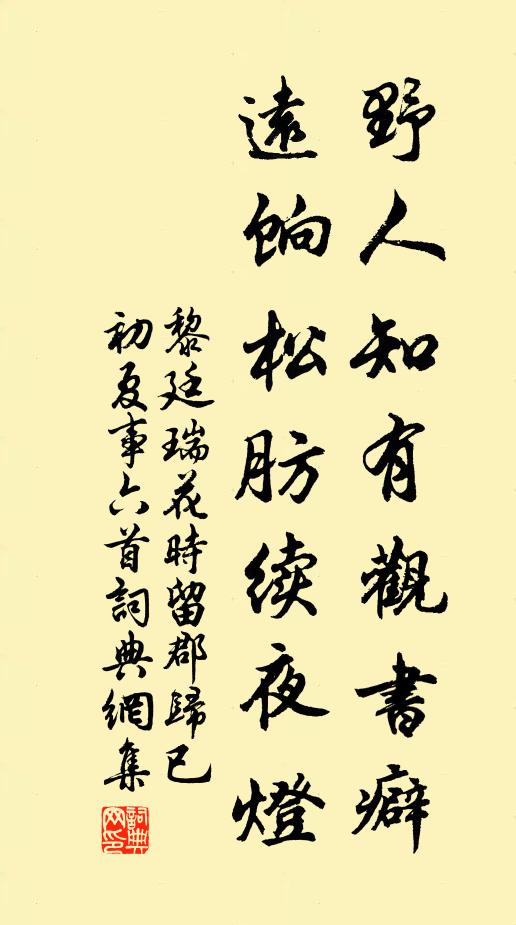 野人知有觀書癖
遠餉松肪续夜燈
黎廷瑞花時留郡歸已
初夏事六首詞典網集
詞典网印